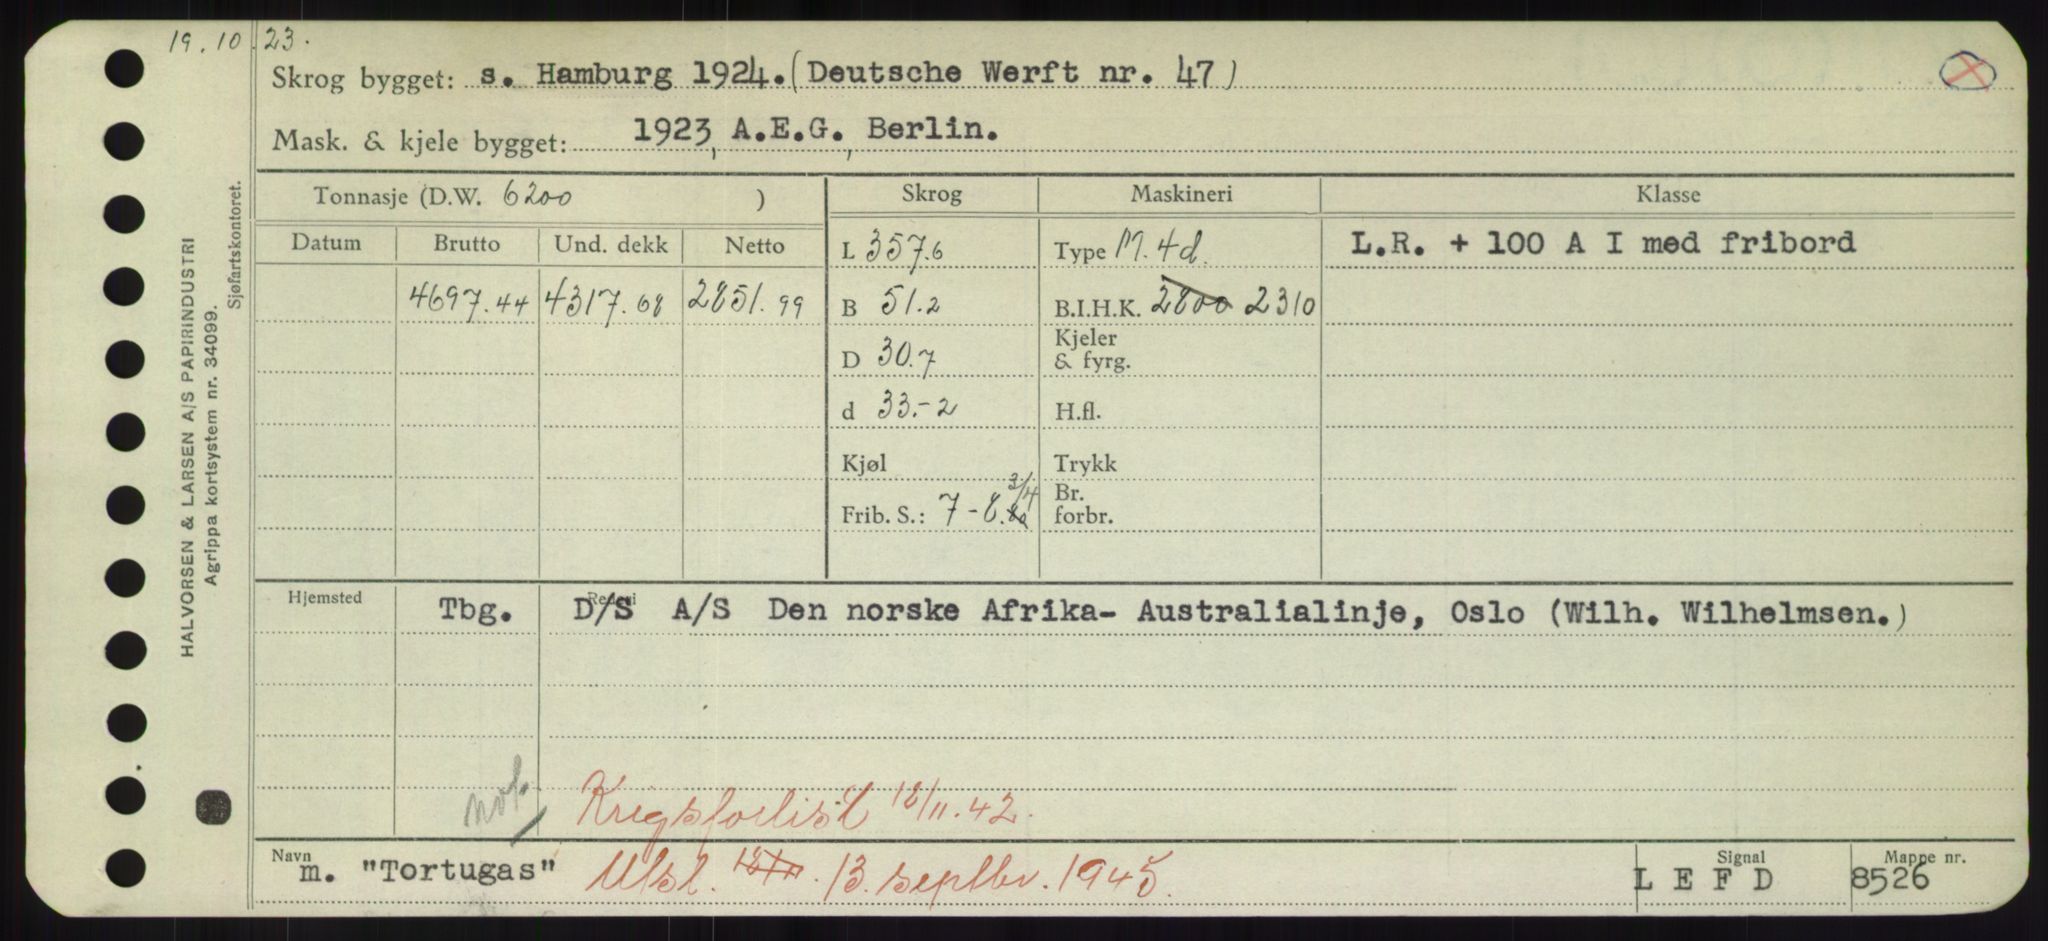 19.10.23.
Skrog bygget: s. Hamburg 1924. (Deutsche Werft nr. 47)
Mask. & kjele bygget: 1923, A.E.G., Berlin.
Tonnasje (D.W. 6200 )
Skrog
Maskineri
Klasse
Datum Brutto Und. dekk Netto
L 357.6
Type M. 4d.
L.R. + 100 A I med fribord
4697.44 4317.68 2851.99
B 51.2
B.I.H.K. 2800 2310
D 30.7
Kjeler
& fyrg.
d 33.-2
H.fl.
Kjøl
Trykk
Frib. S.: 7-8. 3/4
Br.
forbr.
Hjemsted
Tbg. D/S A/S Den norske Afrika- Australialinje, Oslo (Wilh. Wilhelmsen.)
not.
Krigsforlist 12/11.42.
Navn
m. "Tortugas" Utsl. 13. septbr. 1945.
Signal
L E F D
Mappe nr.
8526
HALVORSEN & LARSEN A/S PAPIRINDUSTRI
Agrippa kortsystem nr. 34099.
Sjøfartskontoret.